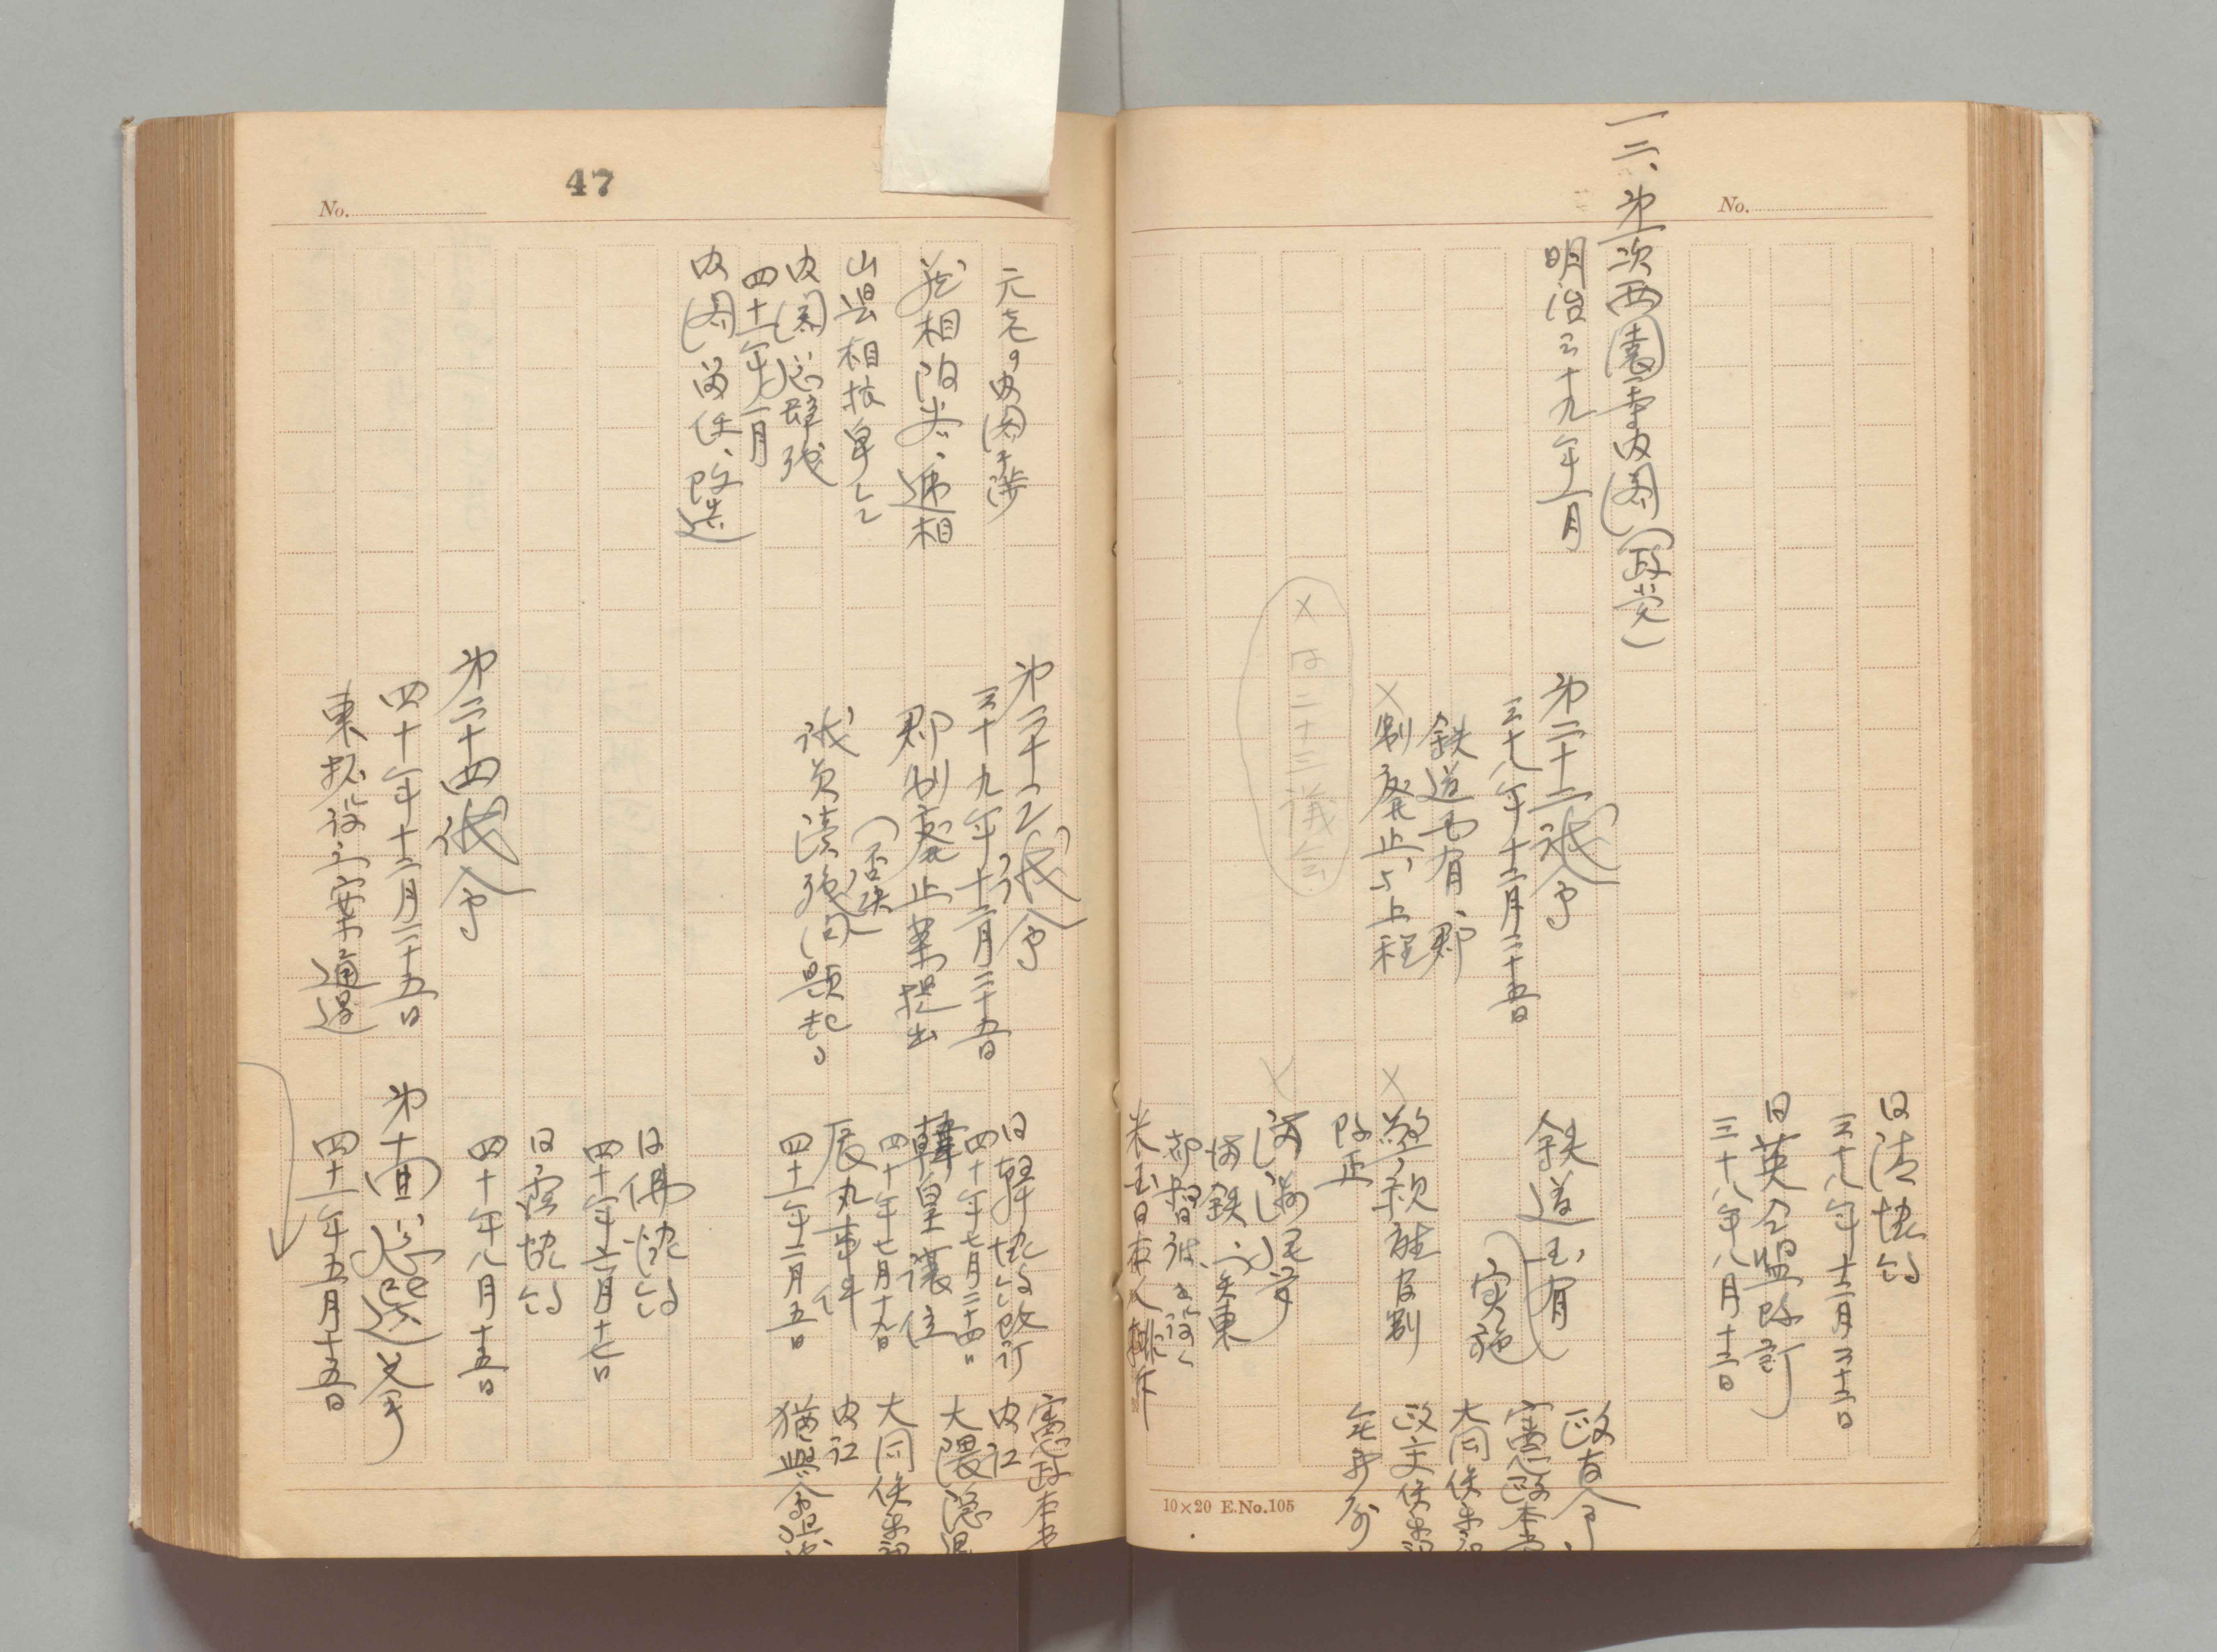 No.
一二、第一次西園寺内閣(政党)
明治三十九年一月
第二十二議会
三十八年十二月二十五日
鉄道国有、郡
×制廃止、上程
×は二十三議会
日清協約
三十八年十二月二十二日
日英同盟改訂
三十八年八月十二日
鉄道国有
実施
×
改正
×
満鉄、関東
都督
米国日本人排斥
政友会
憲政本党
大同倶楽部
政交倶楽部
無所属
10×20 E.No.105
47
No.
元老の内閣干渉
蔵相阪谷、逓相
山県相抜単
内閣総辞職
四十一年一月
内閣留任、改造
第二十三議会
三十九年十二月二十五日
郡制廃止案提出
(否決)
議員涜職問題起る
第二十四議会
四十年十二月二十五日
東拓設立案通過
日韓協約改訂
四十年七月二十四日
韓皇譲位
四十年七月十九日
辰丸事件
四十一年二月五日
日佛協約
四十年六月十七日
日露協約
四十年八月十五日
第十回総選挙
四十一年五月十五日
憲政本党
内訌
大隈隠退
大同倶楽部
内訌
猶興会